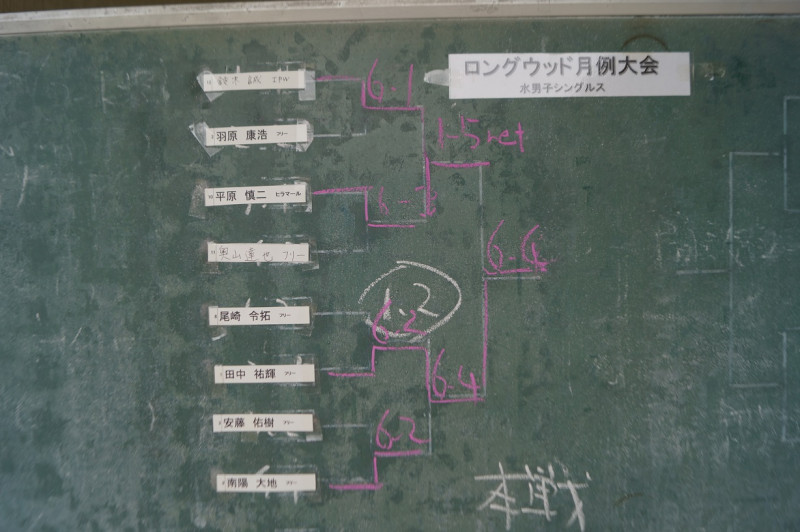 ロングウッド月例大会
水男子シングルス
6-1
羽原 康浩 フリー
1-5 ret
平原 慎二 ヒラマール
奥山達也 フリー
6-4
1.2
尾崎 令拓 フリー
6-2
田中 祐輝 フリー
6-4
安藤 佑樹 フリー
6-2
南陽 大地 フリー
本戦